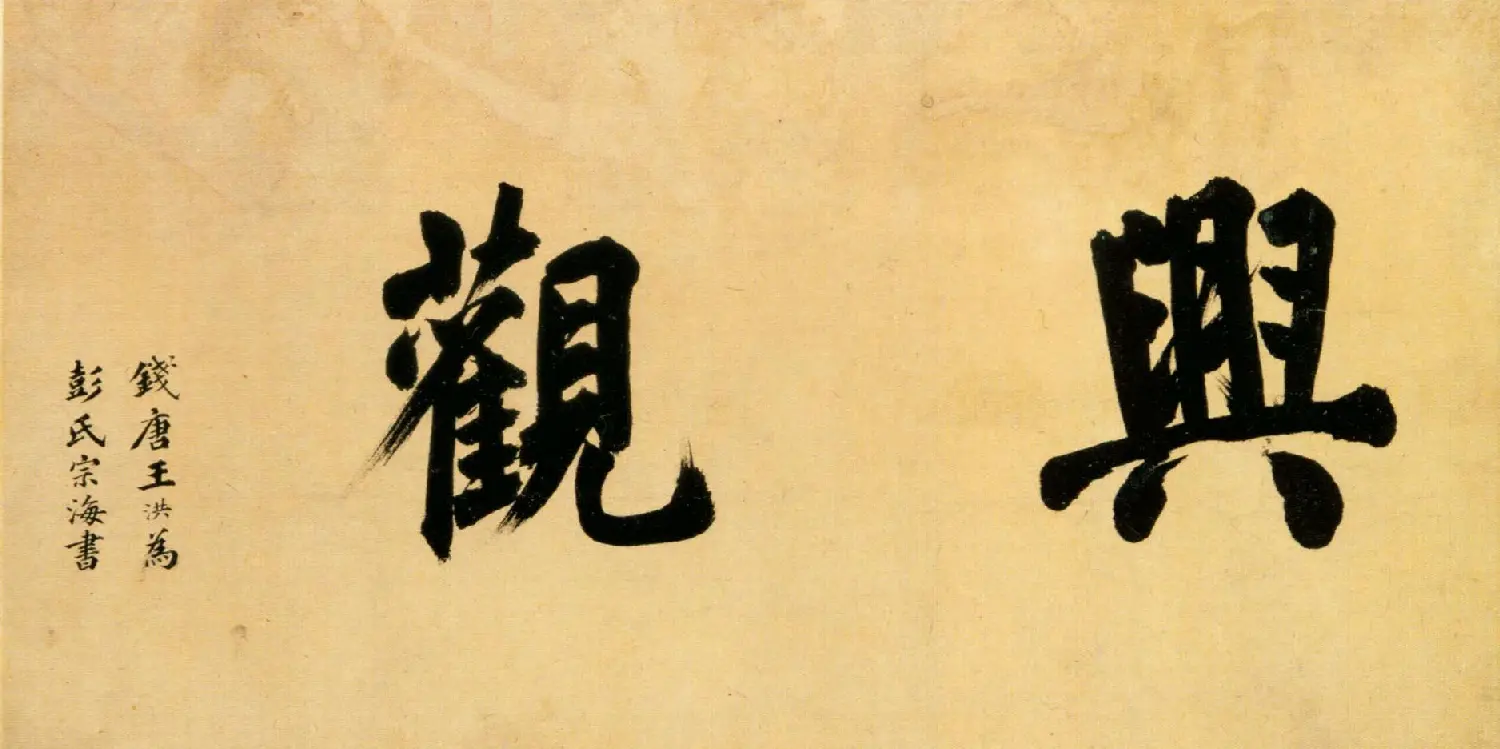 興觀
錢唐王洪為
彭氏宗海書